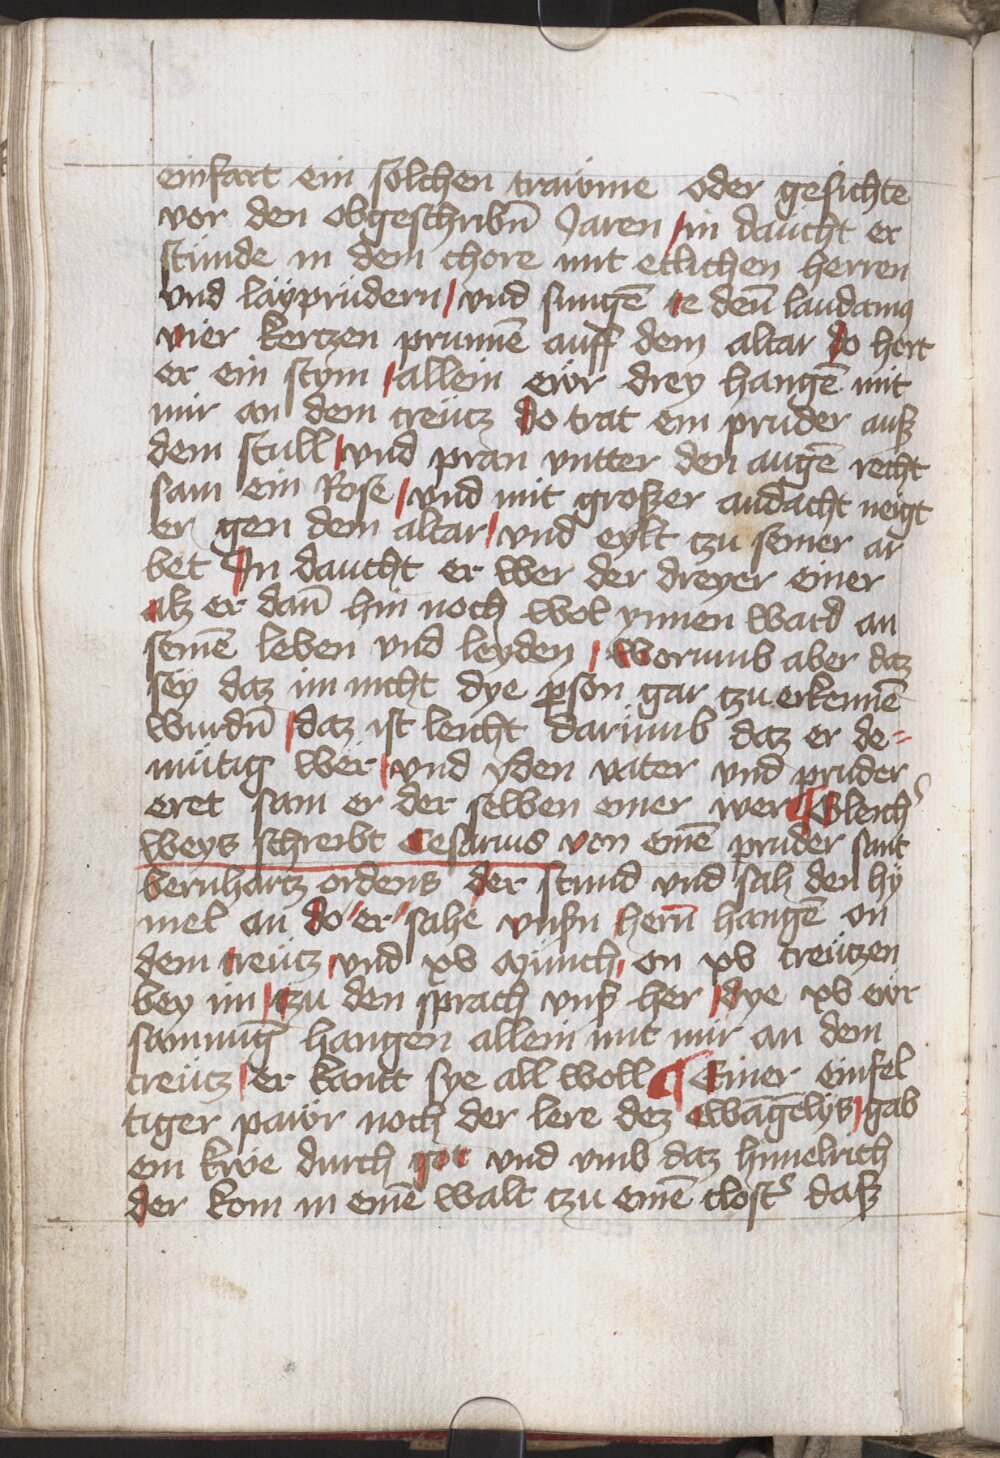 einfart ein solchen trawme oder gesichte
vor den obgeschribn̄ Jaren / in daucht er
stunde in dem chore mit etlichen herren
vnd läyprüdern / vnd sungē te deū laudamꝰ
vier kertzen prunnē auff dem altar do hort
er ein stym / allein ewr drey hangē mit
mir an dem creütz do trat ein pruder auß
dem stull / vnd pran vntter den augē recht
sam ein Rose / vnd mit großer andacht neigt
er gen dem altar / vnd eylt tzu seiner ar
bet In daucht er wer der dreyer einer
alz er dan̄ hin noch wol ynnen ward an
seinē leben vnd leyden / worumb aber daz
sey daz im nicht dye ꝑson gar tzu erkennē
wurdn̄ / daz ist leicht darumb daz er de=
mütig wer / vnd yden vater vnd pruder
eret sam er der selben einer wer ¶ Gleich
weyß schreibt Cesarius von einē pruder sant
bernhartz ordens der stund vnd sah den hy
mel an do er sahe vnßn hern̄ hangē on
dem creütz / vnd xv münch / on xv creützen
bey im / tzu den sprach vnß her / dye xv ewr
samnūg hangen allein mit mir an dem
creütz / er kantt sye all woll ¶ Einer einfel
tiger pawr noch der lere dez ewāgēlyß / gab
ein kwe durch got vnd vmb daz himelrich
der kom in einē walt tzu einē clost' daß